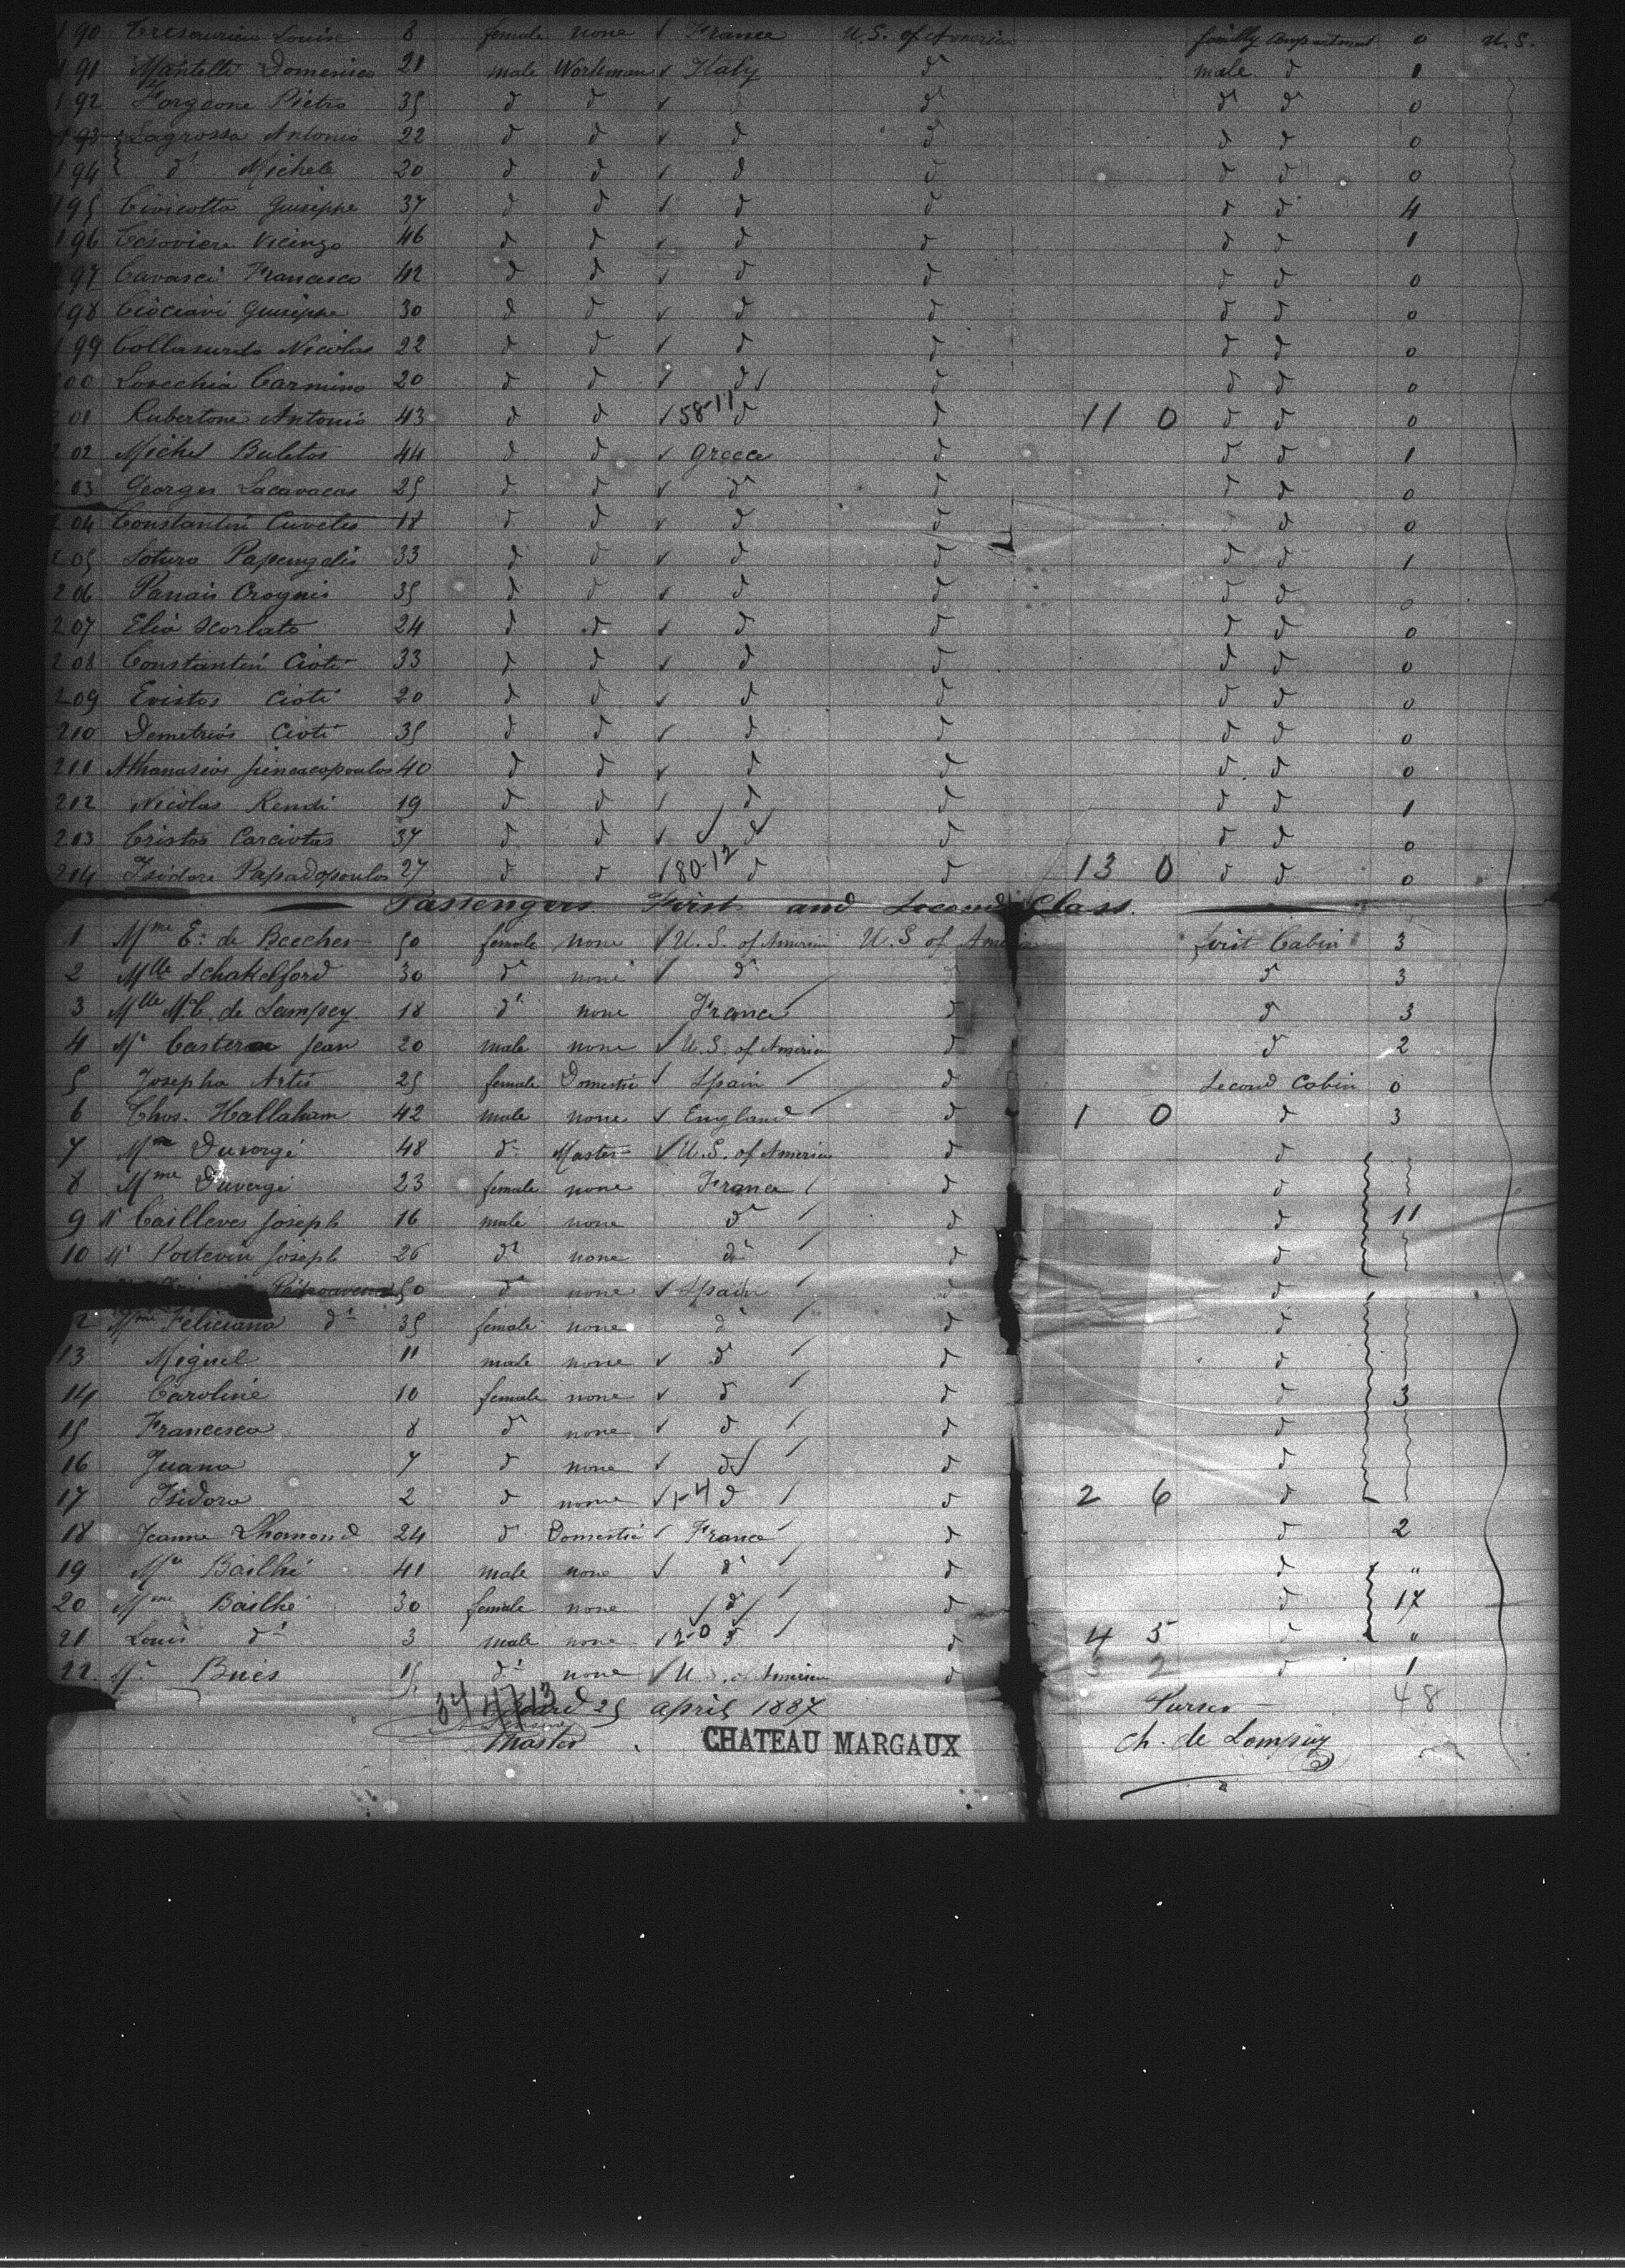 190 Louise 8 female none √ France U.S. of America family compartment 0 U.S.
191 Mantelli Domenico 21 male Workman √ Italy d° male d 1
192 Forgeone Pietro 35 d d √ d d° d° d° 0
193 Lagrossa Antonio 22 d d √ d d d d 0
194 d° Michele 20 d d √ d d d d 0
195 Giuseppe 37 d d √ d d d d 4
196 46 d d √ d d d d 1
197 Cavasci Francesco 42 d d √ d d d d 0
198 Ciociavi Guiseppe 30 d d √ d d d d 0
199 Nicolas 22 d d √ d d d d 0
200 Losechia Carmino 20 d d √ d d d d 0
201 Rubertone Antonio 43 d d √ 58-11 d d 11 0 d d 0
202 Michel Buletos 44 d d √ Greece d d d 1
203 Georges Lacavacas 25 d d √ d° d d d 0
204 Constantin Cuveles 18 d d √ d d d 0
205 Soturo Papengelis 33 d d √ d d d d 1
206 Panais Crognis 35 d d √ d d d d 0
207 Elia Scorlato 24 d d √ d d d d 0
208 Constantin Cioti 33 d d √ d d d d 0
209 Evistos Cioti 20 d d √ d d d d 0
210 Demetrios Cioti 35 d d √ d d d d 0
211 Athanasios 40 d d √ d d d d 0
212 Nicolas Rendi 19 d d √ d d d d 1
213 Cristos Carciotas 37 d d √ d d d d 0
214 Isidore Papadopoulos 27 d d √ 80-12 d d 13 0 d d 0
Passengers First and Second Class.
1 Mme E: de Beecher 50 female none √ U.S. of America U.S of America first Cabin 3
2 Mlle Schakelford 30 d° none √ d° d d 3
3 Mlle M.C. de Lampey 18 d° none France d d 3
4 Mr Casteran Jean 20 male none √ U.S. of America d d° 2
5 Josepha Artis 25 female Domestic √ Spain d Second Cabin 0
6 Thos. Hallaham 42 male none √ England d 1 0 d 3
7 Mr Duvergé 48 d° Master √ U.S. of America d d
8 Mme Duvergé 23 female none France d d
9 Mr Cailleves Joseph 16 male none d° d d 11
10 Mr Poitevin Joseph 26 d° none d° d d
50 d° none √ Spain d d
2 Mme Feliciana d° 35 female none d° d d
13 Miguel 11 male none √ d° d d
14 Caroline 10 female none √ d d d 3
15 Francesca 8 d° none √ d d d
16 Juana 7 d none √ d d d
17 Isidora 2 d none √ 1-4 d d 2 6 d
18 Jeanne Lhomond 24 d° Domestic √ France d d 2
19 Mr Bailhé 41 male none √ d° d d "
20 Mme Bailhé 30 female none d° d d 17
21 Louis d° 3 male none √ 2-0 d d 4 5 d "
22 Mr Bués 15 d° none √ U.S. of America d 3 2 d 1
34 4713 25 april 1887 Purser 48
Master CHATEAU MARGAUX Ch. de Lampey